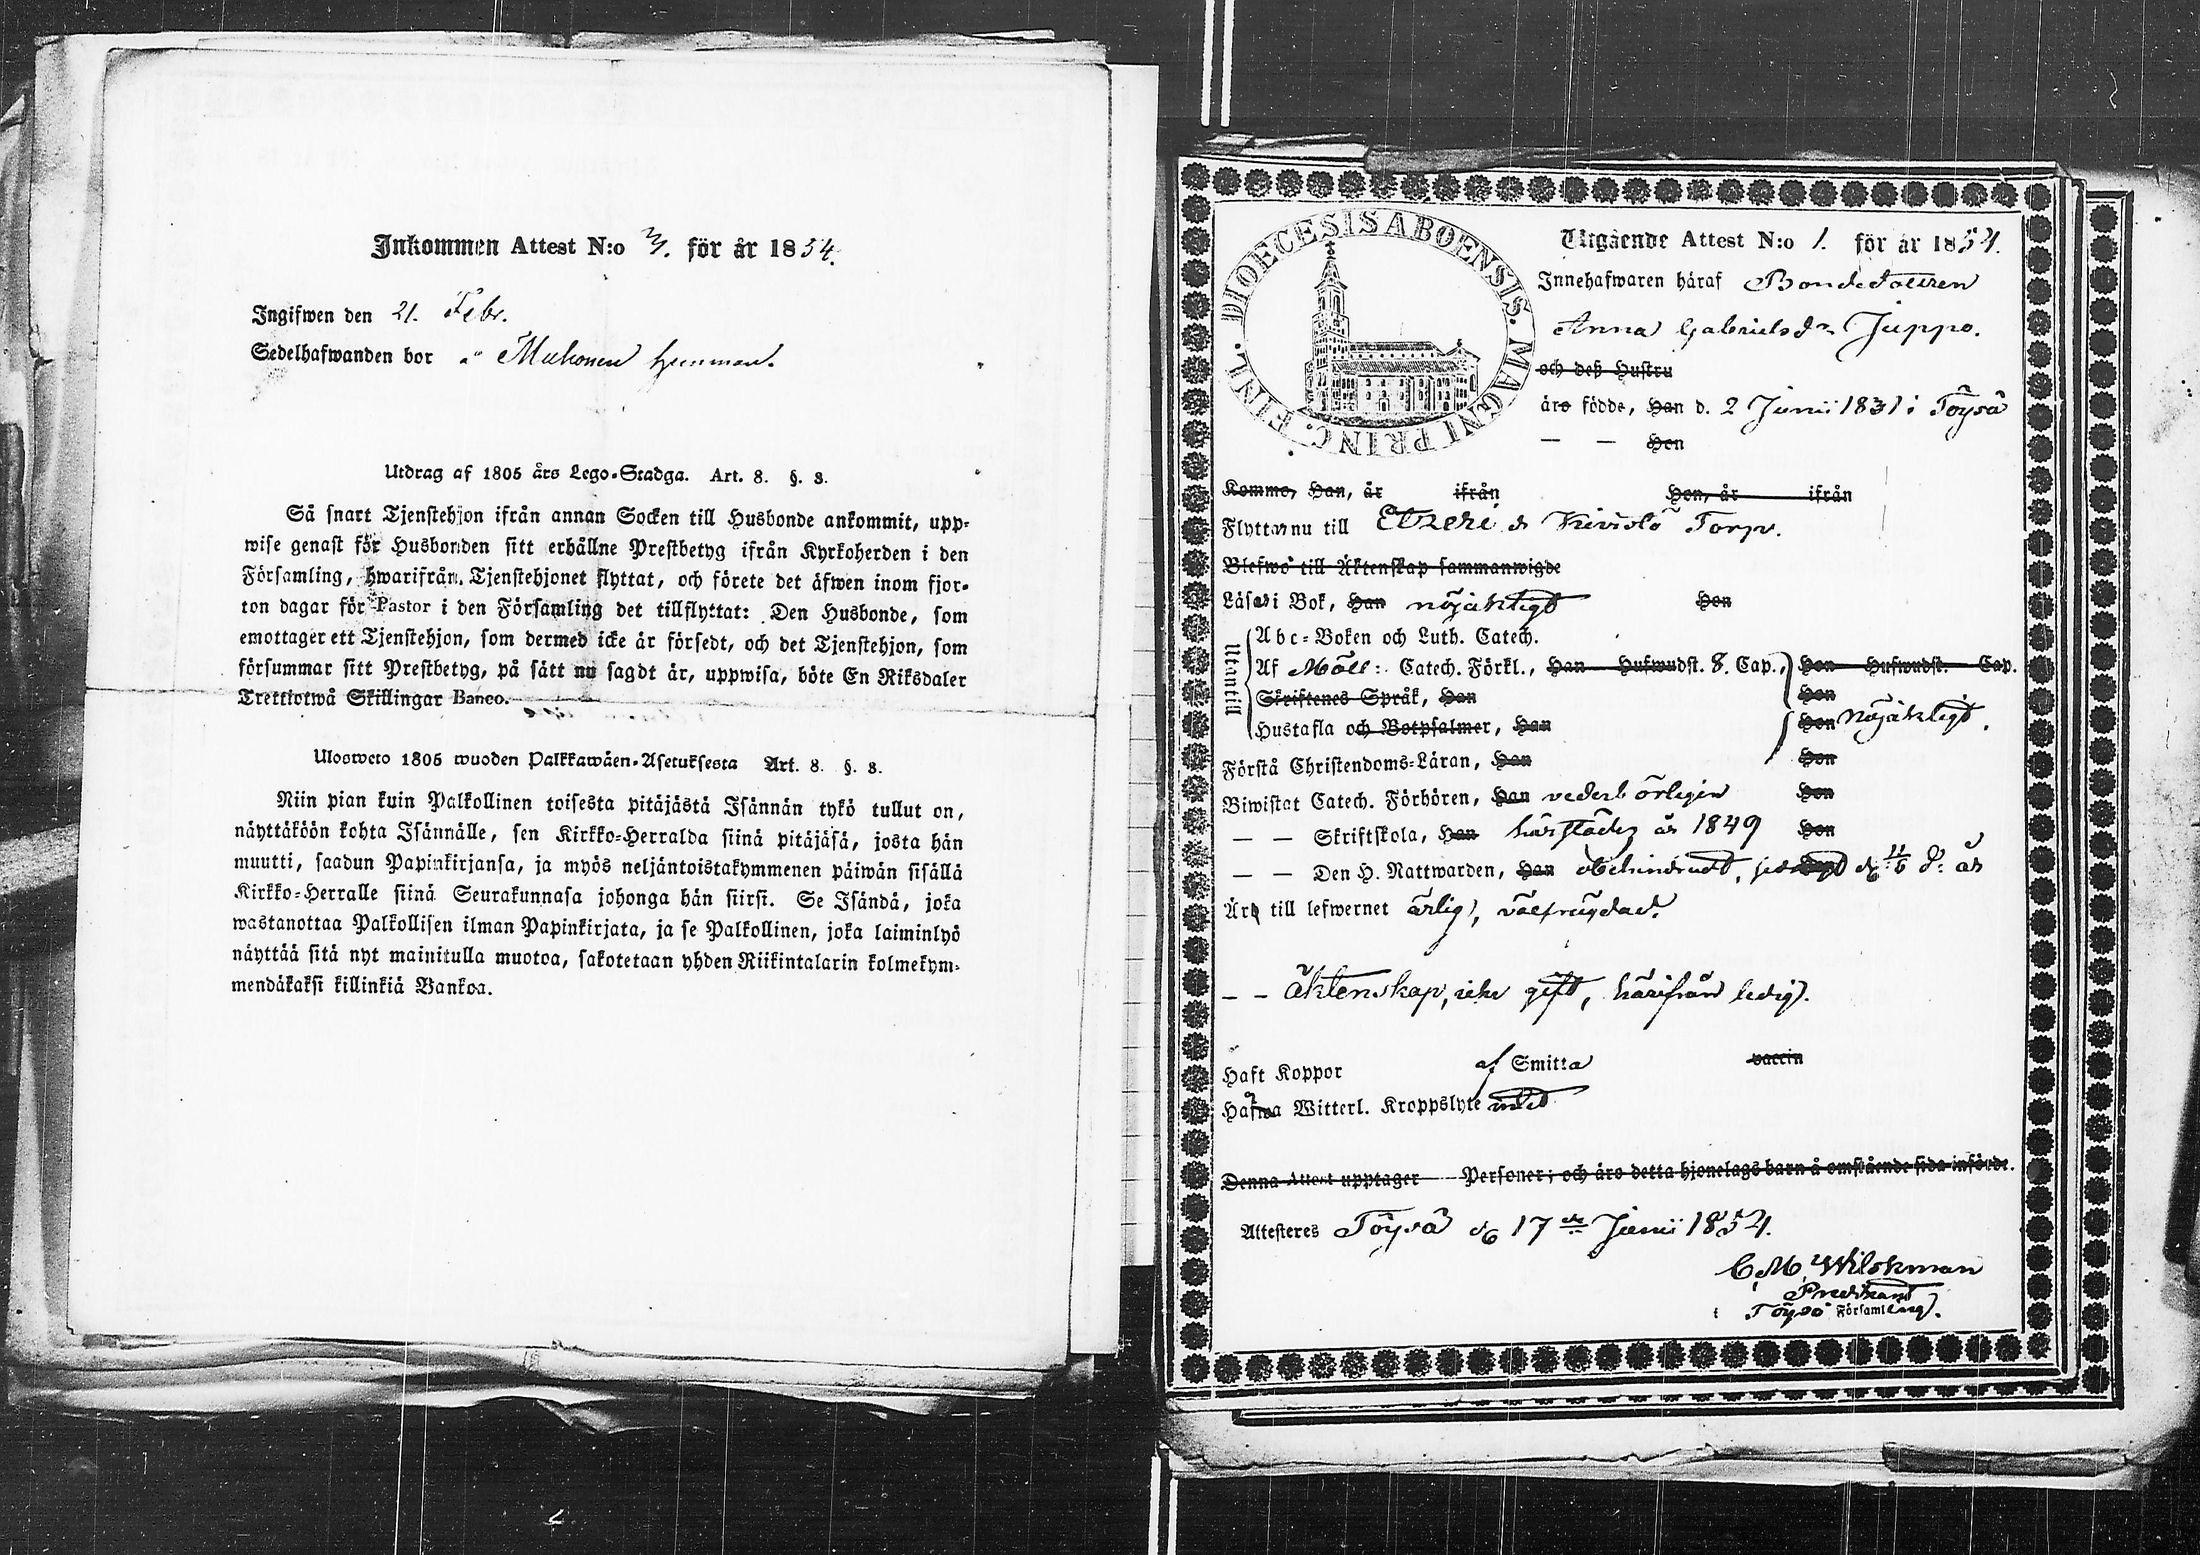 Inkommen Attest N:o 3. för år 1854.
Ingifwen den 21. Febr.
Sedelhafwanden bor å hemman.
Utdrag af 1805 års Lego-Stadga. Art. 8. §. 8.
Så snart Tjenstehjon ifrån annan Socken till Husbonde ankommit, upp-
wise genast för Husbonden sitt erhållne Prestbetyg ifrån Kyrkoherden i den
Församling, hwarifrån Tjenstehjonet flyttat, och förete det äfwen inom fjor-
ton dagar för Pastor i den Församling det tillflyttat: Den Husbonde, som
emottager ett Tjenstehjon, som dermed icke är försedt, och det Tjenstehjon, som
försummar sitt Prestbetyg, på sätt nu sagdt är, uppwisa, böte En Riksdaler
Trettiotwå Skillingar Banco.
Ulosweto 1805 wuoden Palkkawäen-Asetuksesta Art. 8. §. 8.
Niin pian kuin Palkollinen toisesta pitäjästä Isännän tykö tullut on,
näyttäköön kohta Isännälle, sen Kirkko-Herralda siinä pitäjäsä, josta hän
muutti, saadun Papinkirjansa, ja myös neljäntoistakymmenen päiwän sisällä
Kirkko-Herralle siinä Seurakunnasa johonga hän siirsi. Se Isändä, joka
wastanottaa Palkollisen ilman Papinkirjata, ja se Palkollinen, joka laiminlyö
näyttää sitä nyt mainitulla muotoa, sakotetaan yhden Riikintalarin kolmekym-
mendäkaksi killinkiä Bankoa.
DIOECESIS ABOENSIS. MAGNI PRINC. FINL.
Utgående Attest N:o 1. för år 1854.
Innehafwaren häraf Bondedottren
Anna Gabrielsdr Juppo.
och deß Hustru
äro födde, Han d. 2 Junii 1831 i Töysä
— — Hon
Komma, Han, år ifrån Hon, år ifrån
Flyttar nu till Etzeri & Kivistö Torp.
Blefwo till Äktenskap sammanwigde
Läsa i Bok, Han nöjaktigt Hon
Utantill
Abc-Boken och Luth. Catech.
Af Möll: Catech. Förkl., Han Hufwudst. 8. Cap., Hon Hufwudst. Cap.
Skriftenes Språk, Han Hon
Hustafla och Botpsalmer, Han Hon nöjaktigt.
Förstå Christendoms-Läran, Han Hon
Biwistat Catech. Förhören, Han vederbörligen Hon
— — Skriftskola, Han härstädes år 1849 Hon
— — Den H. Nattwarden, Han obehindradt, d: år
Äro till lefwernet ärlig, välfrägdad.
— — äktenskap, icke gift, härifrån ledig.
Haft Koppor af Smitta vaccin
Hafwa Witterl. Kroppslyte intet
Denna Attest upptager Personer; och äro detta hjonelags barn å omstående sida införde.
Attesteres Töysä d. 17de Junii 1854.
C. M. Wilskman
Predikant
i Töysä Församling.